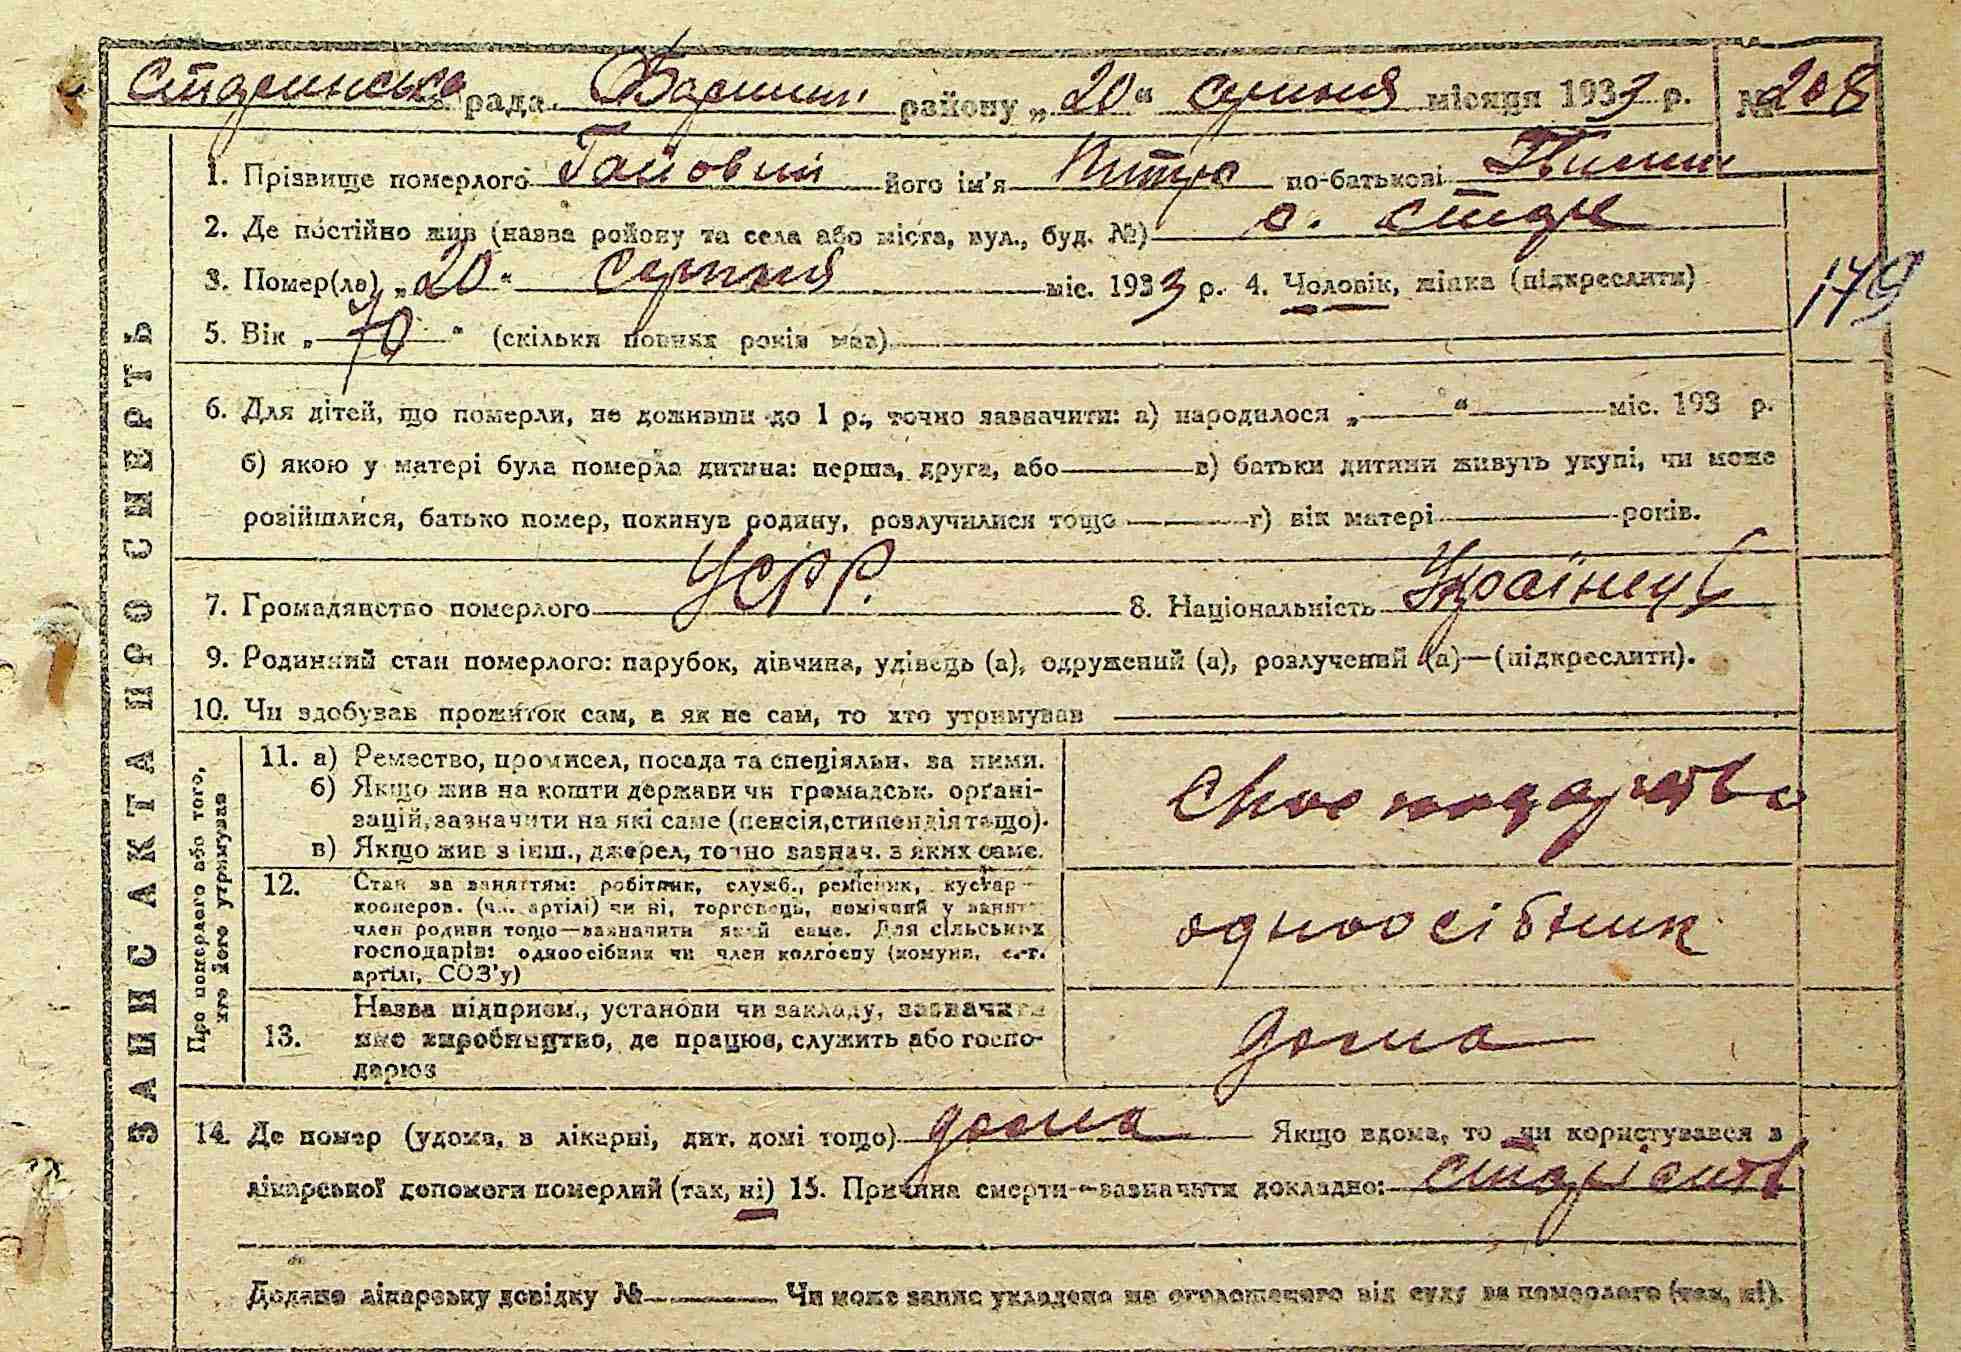 Старинська рада Бориш. району „20“ серпня місяця 1933 р. № 208
1. Прізвище померлого Гайовий його ім'я Петро по-батькові
2. Де постійно жив (назва району та села або міста, вул., буд. №) с. Старе
3. Помер(ла) „20“ серпня міс. 1933 р. 4. Чоловік, жінка (підкреслити)
179
5. Вік „70“ (скільки повних років мав)
6. Для дітей, що померли, не доживши до 1 р., точно зазначити: а) народилося „ “ міс. 193 р.
б) якою у матері була померла дитина: перша, друга, або в) батьки дитини живуть укупі, чи може
розійшлися, батько помер, покинув родину, розлучилися тощо г) вік матері років.
7. Громадянство померлого УСРР. 8. Національність Українец
9. Родинний стан померлого: парубок, дівчина, удівець (а), одружений (а), розлучений (а)—(підкреслити).
10. Чи здобував прожиток сам, а як не сам, то хто утримував
ЗАПИС АКТА ПРО СМЕРТЬ
Про померлого або того, хто його утримував
11. а) Ремество, промисел, посада та спеціяльн. за ними.
б) Якщо жив на кошти держави чи громадськ. органі-
зацій, зазначити на які саме (пенсія, стипендія тощо).
в) Якщо жив з інш., джерел, точно зазнач. з яких саме.
12. Стан за заняттям: робітник, служб., ремісник, кустар
кооперов. (чл. артілі) чи ні, торговець, помічний у занят.
член родини тощо—зазначити який саме. Для сільських
господарів: одноосібник чи член колгоспу (комуни, с.-г.
артілі, СОЗ'у)
одноосібник
13. Назва підприєм., установи чи закладу, зазначити
яке виробництво, де працює, служить або госпо-
дарює
дома
14. Де помер (удома, в лікарні, дит. домі тощо) дома Якщо вдома, то чи користувався з
лікарської допомоги померлий (так, ні) 15. Причина смерти—зазначити докладно: старість
Додано лікарську довідку № Чи може запис укладено на оголошеного від суду за померлого (так, ні).